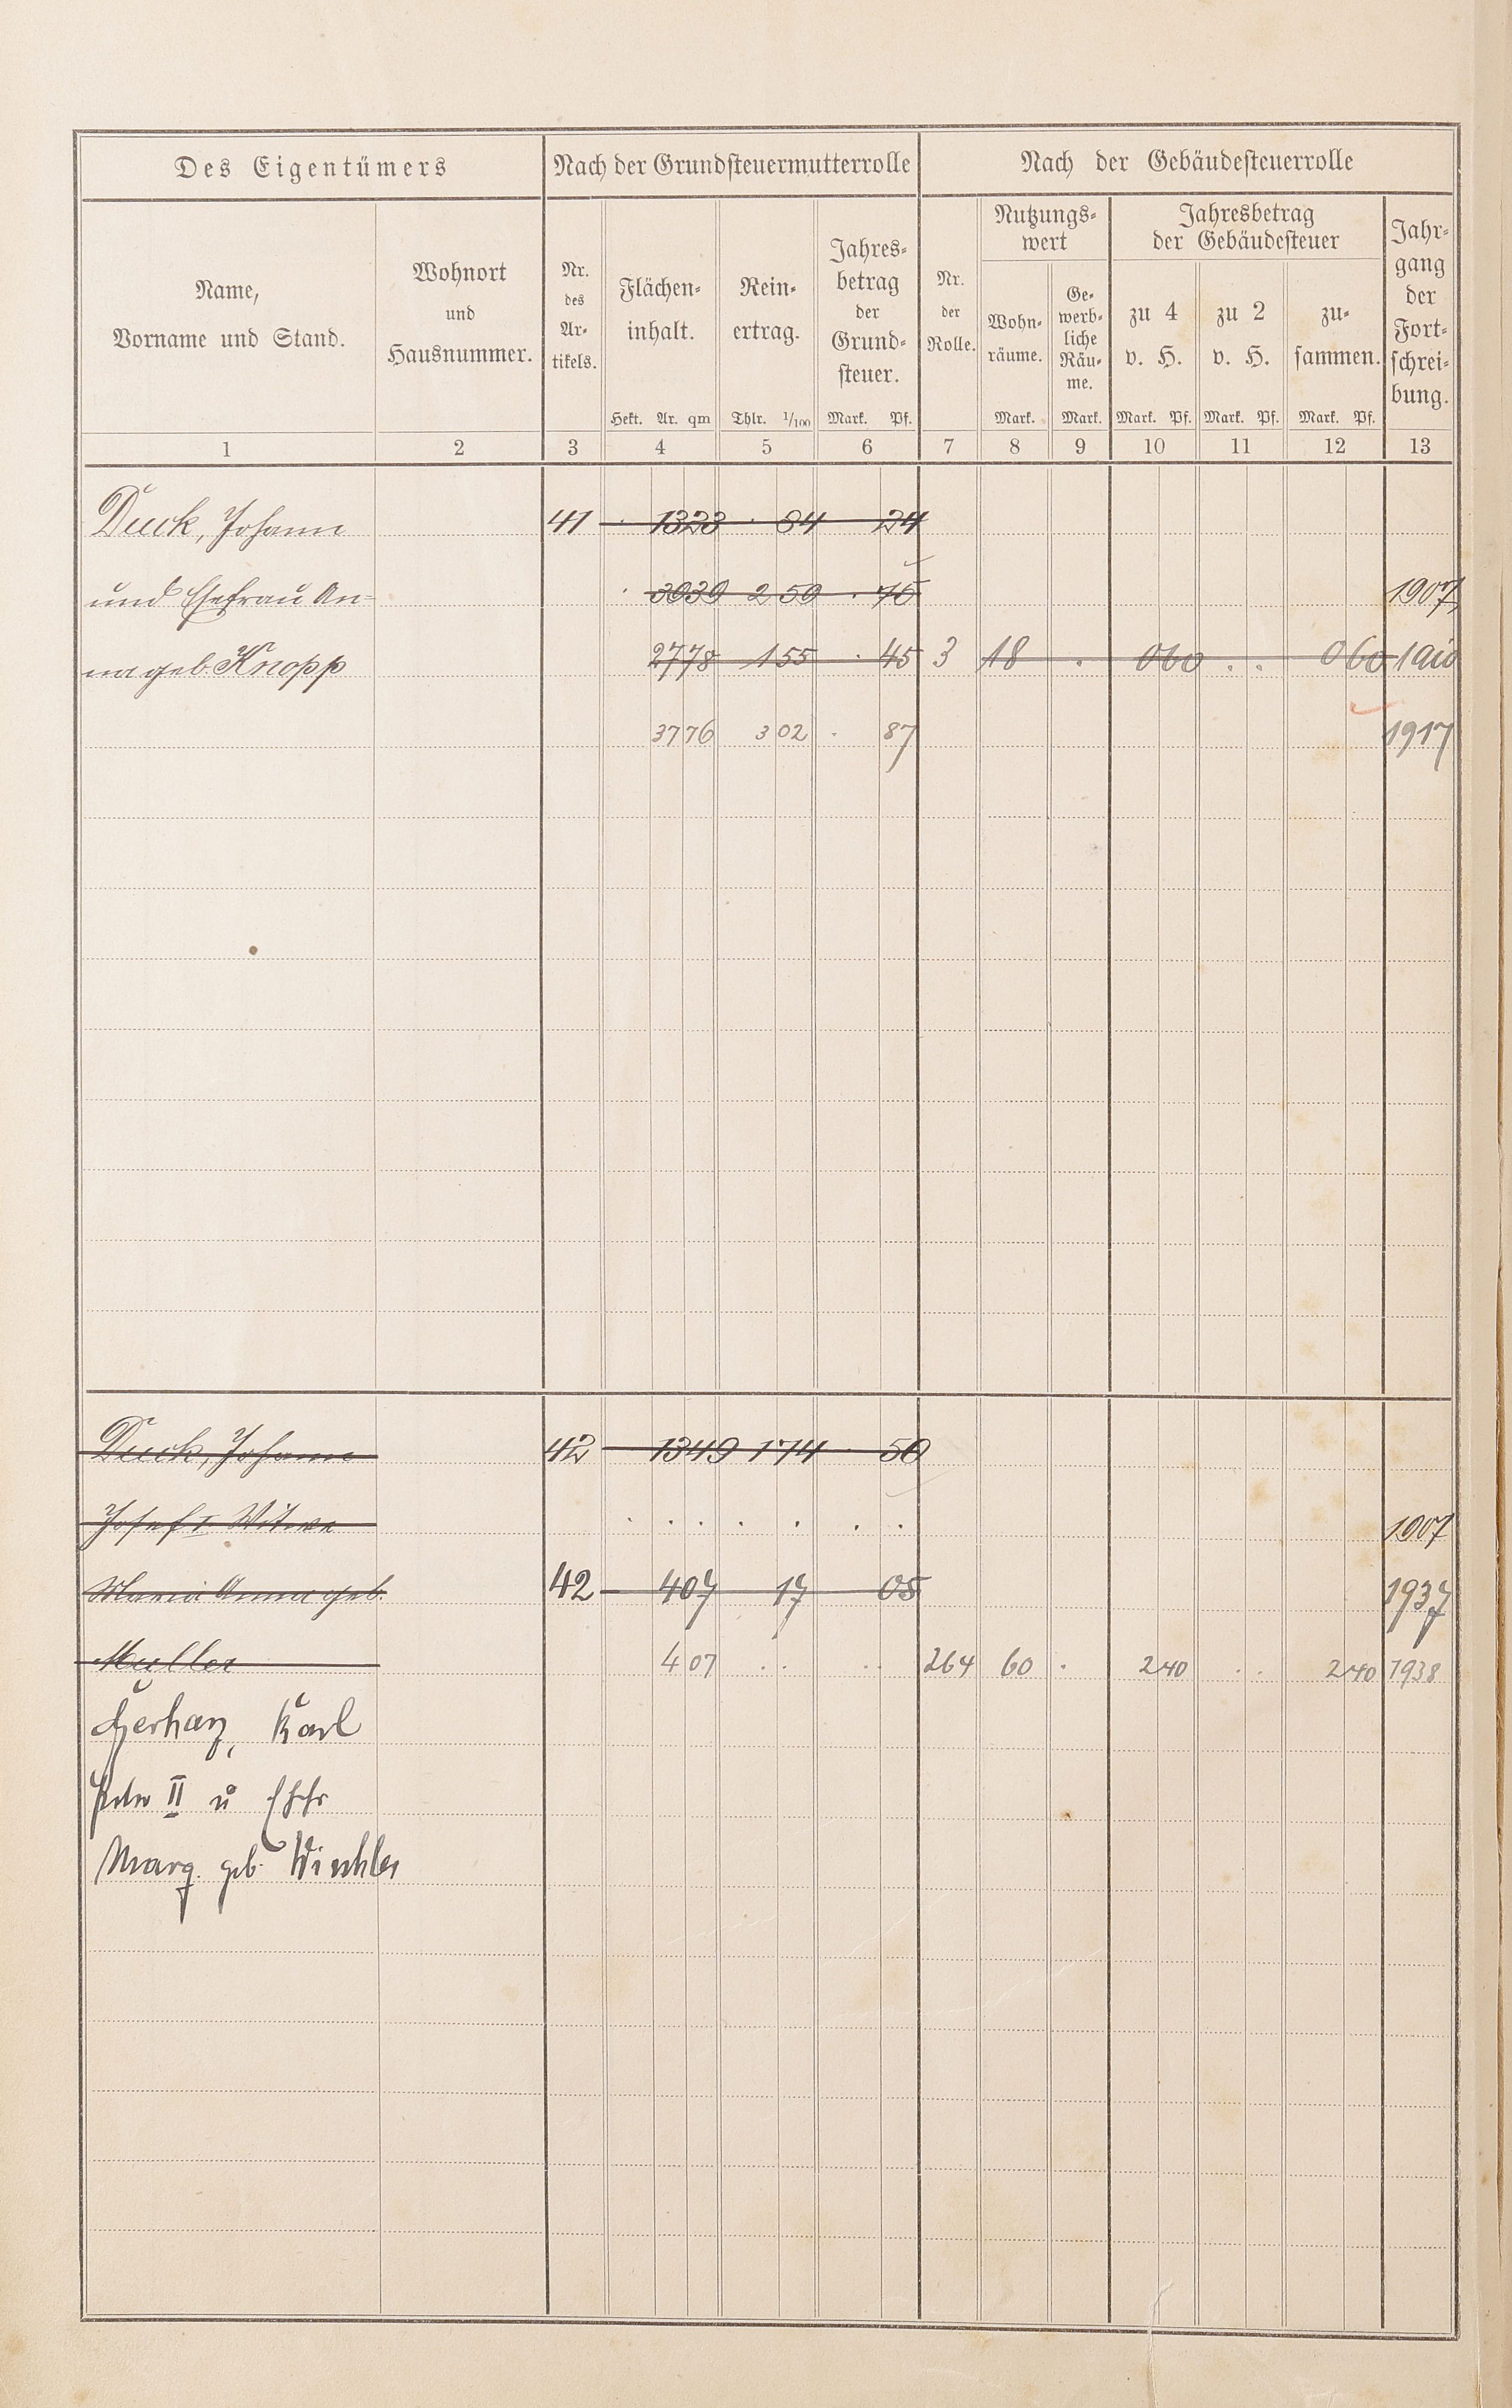 Des Eigentümers Nach der Grundsteuermutterrolle Nach der Gebäudesteuerrolle
Name, Vorname und Stand. Wohnort und Hausnummer. Nr. des Artikels. Flächeninhalt. Reinertrag. Jahresbetrag der Grundsteuer. Nr. der Rolle. Nutzungswert Jahresbetrag der Gebäudesteuer Jahrgang der Fortschreibung.
Wohnräume. Gewerbliche Räume. zu 4 v. H. zu 2 v. H. zusammen.
Hekt. Ar. qm Thlr. 1/100 Mark. Pf. Mark. Mark. Mark. Pf. Mark. Pf. Mark. Pf.
1 2 3 4 5 6 7 8 9 10 11 12 13
Duck, Johann 41 · 1323 · 84 24
und Ehefrau An= · 3939 2 59 · 75 1907
na geb. Knopp 2778 155 · 45 3 18 · 060 . . 060 1910
3776 3 02 · 87 1917
Duck, Johann 42 1349 174 · 50
Josef I Witwe · · · · · · · 1907
Maria Anna geb. 42 407 17 05 1937
Müller 4 07 . . . . 264 60 · 240 . . 240 1938
Gerharz, Karl
Peter II u Ehfr
Marg. geb. Winkler